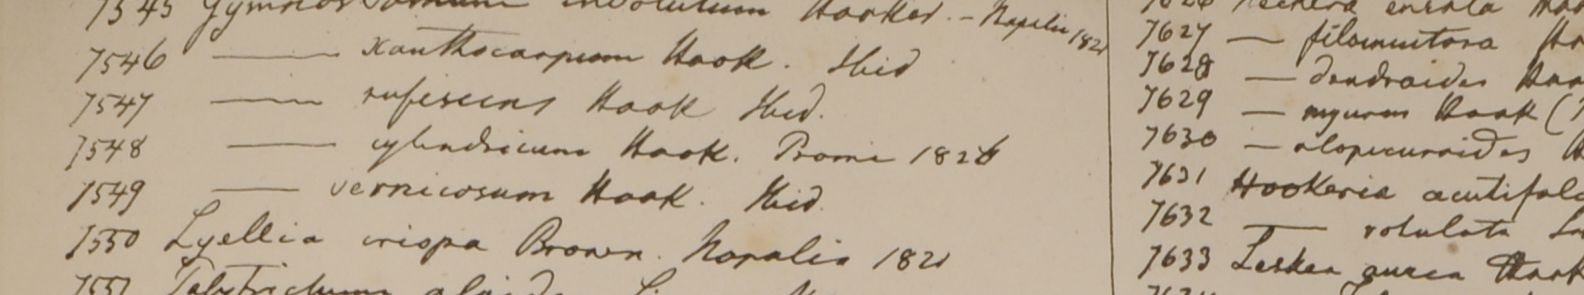 7545 Gymnostomum involutum Hooker. - Napalia 1821
7546 —— xanthocarpum Hook. Ibid
7547 —— rufescens Hook Ibid.
7548 —— cylindricum Hook. Prome 1826
7549 —— vernicosum Hook. Ibid.
7550 Lyellia crispa Brown. Napalia 1821
7551 Polytrichum
7626 Neckera
7627 —
7628 — dendroides
7629 — myurus Hook (
7630 — alopecuroides
7631 Hookeria acutifol
7632 —— rotulata
7633 Leskea aurea Hook